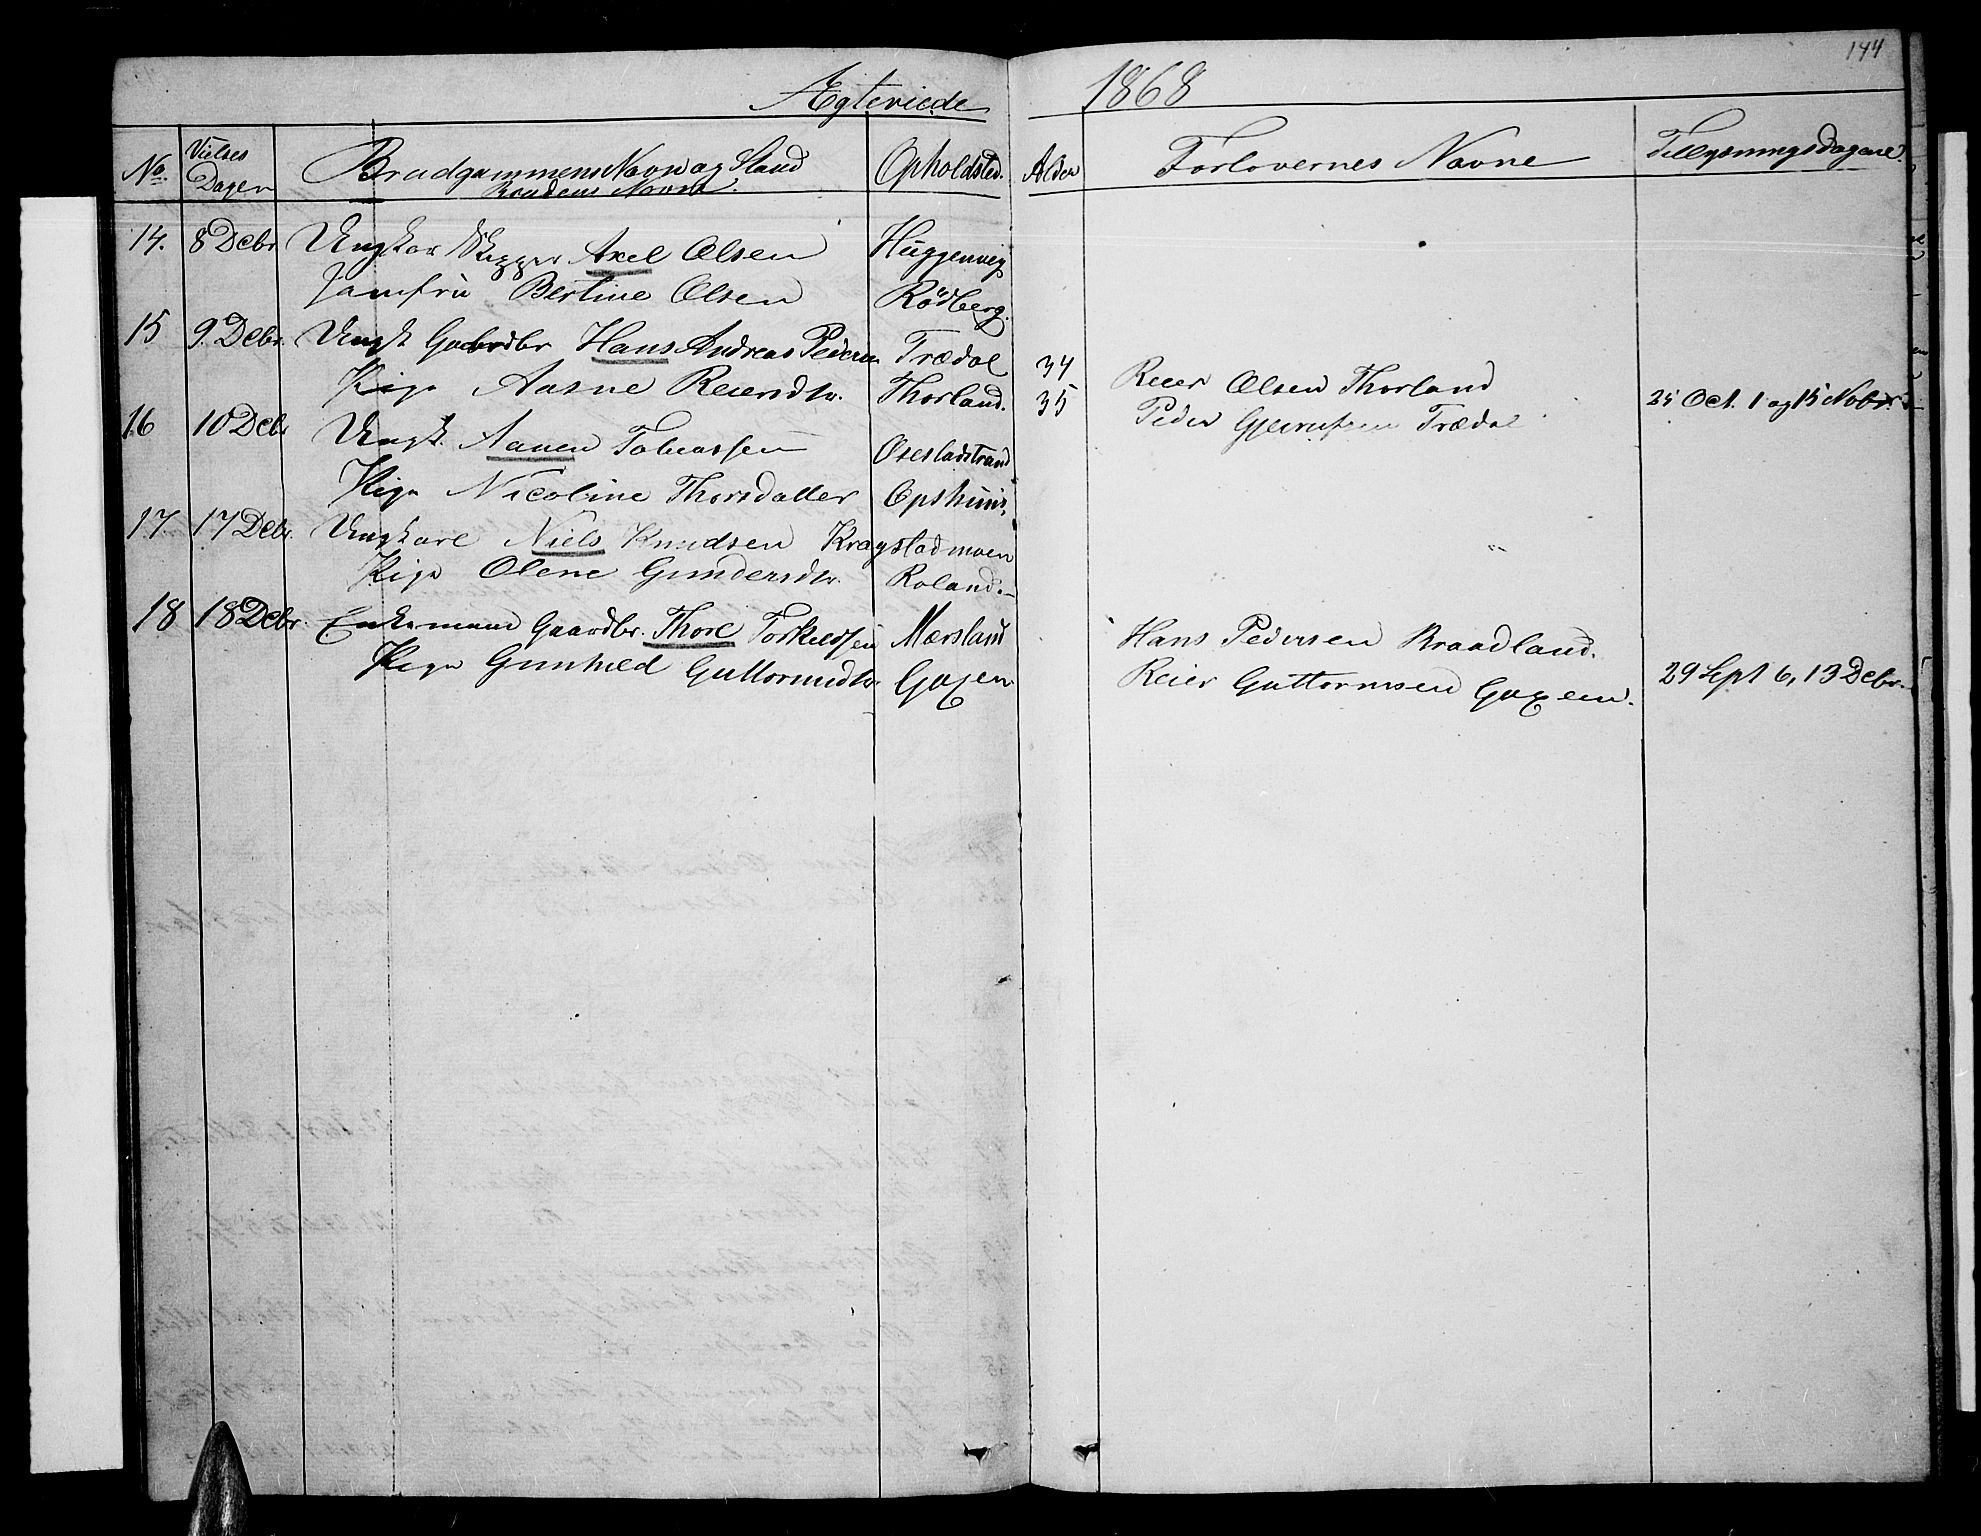 144
Ægteviede 1868
No. Vielses Dagen Brudgommens Navn og Stand Brudens Navn Opholdsted. Alder Forlovernes Navne Tillysningsdagene.
14. 8 Debr Ungkar Skipper Axel Olsen Huggenvig
Jomfru Bertine Olsen Rödberg.
15 9. Debr. Ungk Gaardbr Hans Andreas Pedersen Trædal 34 Reier Olsen Thorland
Pige Aasne Reiersdtr. Thorland. 35 Peder Trædal 25 Oct. 1 og 15 Nobr.
16 10 Debr Ungk. Aanen Tobiassen Osesladstrand
Pige Nicoline Thorsdatter
17. 17 Debr. Ungkarl Niels Knudsen Kragstadmoen
Pige Olene Gundersdtr. Roland.
18 18 Debr. Enkemand Gaardbr. Thore Torkildsen Mersland Hans Pedersen Braadland.
Pige Gunhild Guttormsdtr. Goxen Reier Guttormsen Goxem. 29 Sept 6, 13 Debr.